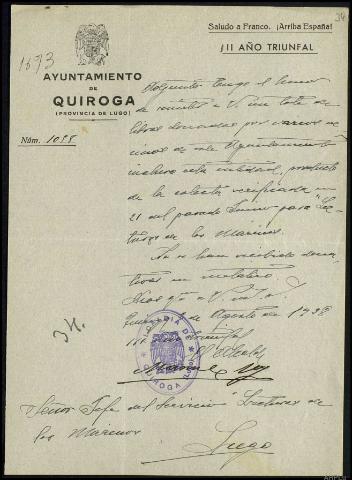 34
Saludo a Franco. ¡Arriba España!
¡II AÑO TRIUNFAL
1573
AYUNTAMIENTO
DE
QUIROGA
(PROVINCIA DE LUGO)
Núm. 1055
Adjunto tengo el honor
de remitir a V. un lote de
libros donados por varios ve
cinos de este Ayuntamiento
incluso esta entidad, producto
de la colecta verificada en
21 del pasado Junio para "Lec
turas de los Marinos.
No se han recibido dona
tivos en metálico.
Dios gue a V. m. a.
Quiroga de Agosto de 1938
III Año Triunfal
El Alcalde,
Manuel
ALCALDIA DE
QUIROGA (LUGO)
Señor Jefe del Servicio "Lecturas de
los Marinos
Lugo